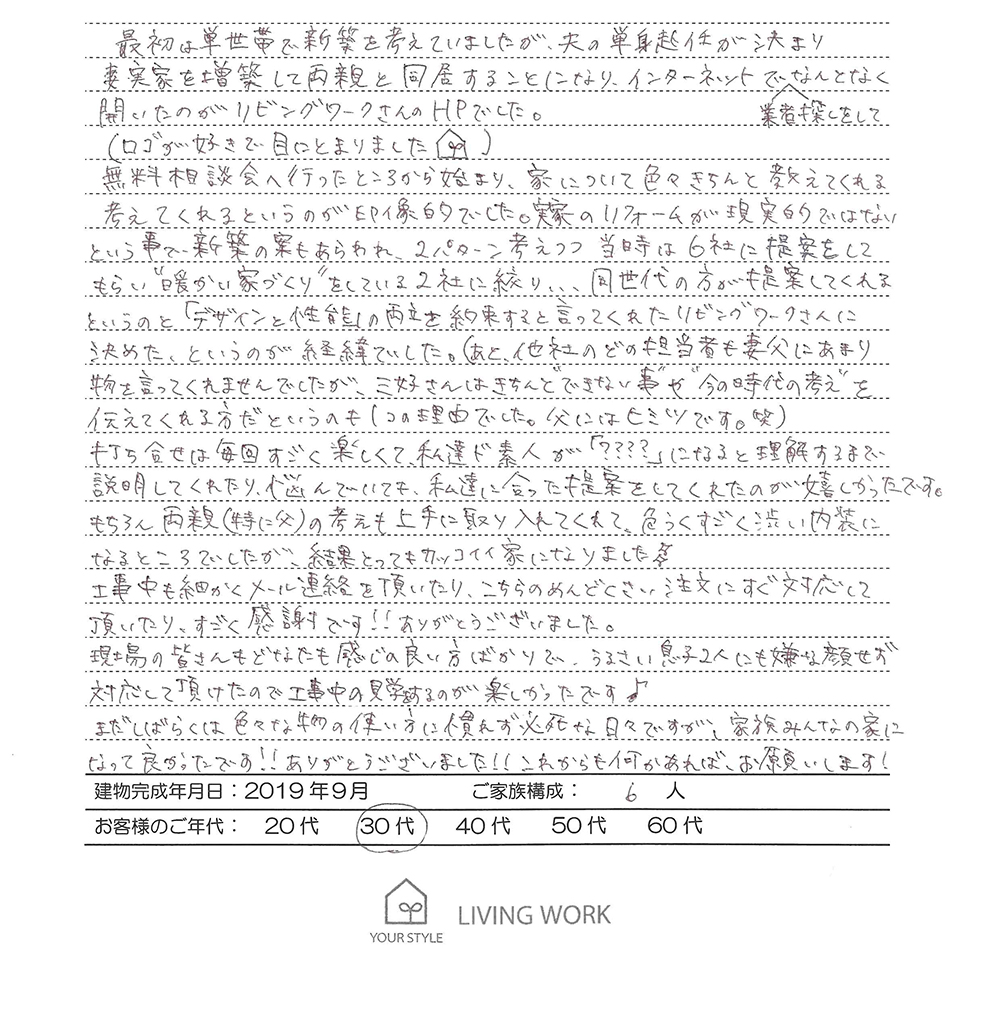 最初は単世帯で新築を考えていましたが、夫の単身赴任が決まり
妻実家を増築して両親と同居することになり、インターネットでなんとなく
業者探しをして
開いたのがリビングワークさんのHPでした。
(ロゴが好きで目にとまりました)
無料相談会へ行ったところから始まり、家について色々きちんと教えてくれる
考えてくれるというのが印象的でした。実家のリフォームが現実的ではない
という事で、新築の案もあらわれ、2パターン考えつつ当時は6社に提案をして
もらい"暖かい家づくり"をしている2社に絞り、、、同世代の方が提案してくれる
というのと「デザインと性能」の両立を約束すると言ってくれたリビングワークさんに
決めた、というのが経緯でした。(あと、他社のどの担当者も妻父にあまり
物を言ってくれませんでしたが、三好さんはきちんと"できない事"や"今の時代の考え"を
伝えてくれる方だというのも1つの理由でした。父にはヒミツです。笑)
打ち合せは毎回すごく楽しくて、私達ド素人が「????」になると理解するまで
説明してくれたり、悩んでいても、私達に合った提案をしてくれたのが嬉しかったです。
もちろん両親(特に父)の考えも上手に取り入れてくれて、危うくすごく渋い内装に
なるところでしたが、結果とってもカッコイイ家になりました
工事中も細かくメール連絡を頂いたり、こちらのめんどくさい注文にすぐ対応して
頂いたり、すごく感謝です!!ありがとうございました。
現場の皆さんもどなたも感じの良い方ばかりで、うるさい息子2人にも嫌な顔せず
対応して頂けたので工事中の見学するのが楽しかったです♪
まだしばらくは色々な物の使い方に慣れず必死な日々ですが、家族みんなの家に
なって良かったです!!ありがとうございました!!これからも何かあれば、お願いします!
建物完成年月日:2019年9月 ご家族構成: 6 人
お客様のご年代: 20代 30代 40代 50代 60代
YOUR STYLE LIVING WORK